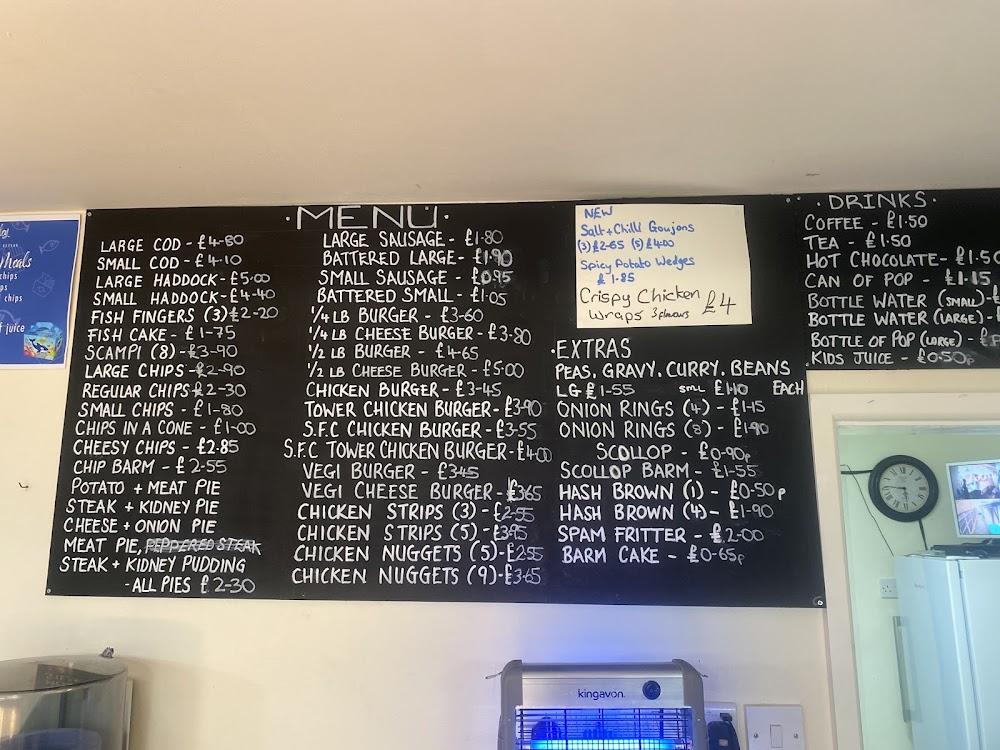 Meals
chips
chips
juice
· MENU ·
LARGE COD - £4-80
SMALL COD - £4-10
LARGE HADDOCK - £5-00
SMALL HADDOCK - £4-40
FISH FINGERS (3) £2-20
FISH CAKE - £1-75
SCAMPI (8) - £3-90
LARGE CHIPS - £2-90
REGULAR CHIPS - £2-30
SMALL CHIPS - £1-80
CHIPS IN A CONE - £1-00
CHEESY CHIPS - £2.85
CHIP BARM - £2-55
POTATO + MEAT PIE
STEAK + KIDNEY PIE
CHEESE + ONION PIE
MEAT PIE, PEPPERED STEAK
STEAK + KIDNEY PUDDING
- ALL PIES £2-30
LARGE SAUSAGE - £1-80
BATTERED LARGE - £1.90
SMALL SAUSAGE - £0.95
BATTERED SMALL - £1.05
1/4 LB BURGER - £3-60
1/4 LB CHEESE BURGER - £3-80
1/2 LB BURGER - £4-65
1/2 LB CHEESE BURGER - £5-00
CHICKEN BURGER - £3-45
TOWER CHICKEN BURGER - £3-90
S.F.C CHICKEN BURGER - £3-55
S.F.C TOWER CHICKEN BURGER - £4-00
VEGI BURGER - £3-45
VEGI CHEESE BURGER - £3.65
CHICKEN STRIPS (3) - £2-55
CHICKEN STRIPS (5) - £3-95
CHICKEN NUGGETS (5) - £2-55
CHICKEN NUGGETS (9) - £3-65
NEW
Salt + Chilli Goujons
(3) £2-65 (5) £4.00
Spicy Potato Wedges
£1.85
Crispy Chicken £4
Wraps 3 flavours
· EXTRAS
PEAS, GRAVY, CURRY, BEANS
LG £1-55 SML £1.10 EACH
ONION RINGS (4) - £1-15
ONION RINGS (8) - £1-90
SCOLLOP - £0-90p
SCOLLOP BARM - £1-55
HASH BROWN (1) - £0-50p
HASH BROWN (4) - £1-90
SPAM FRITTER - £2-00
BARM CAKE - £0-65p
· DRINKS ·
COFFEE - £1.50
TEA - £1.50
HOT CHOCOLATE - £1.50
CAN OF POP - £1.15
BOTTLE WATER (SMALL) - £
BOTTLE WATER (LARGE) -
BOTTLE OF POP (LARGE) - £
KIDS JUICE - £0.50p
kingavon.